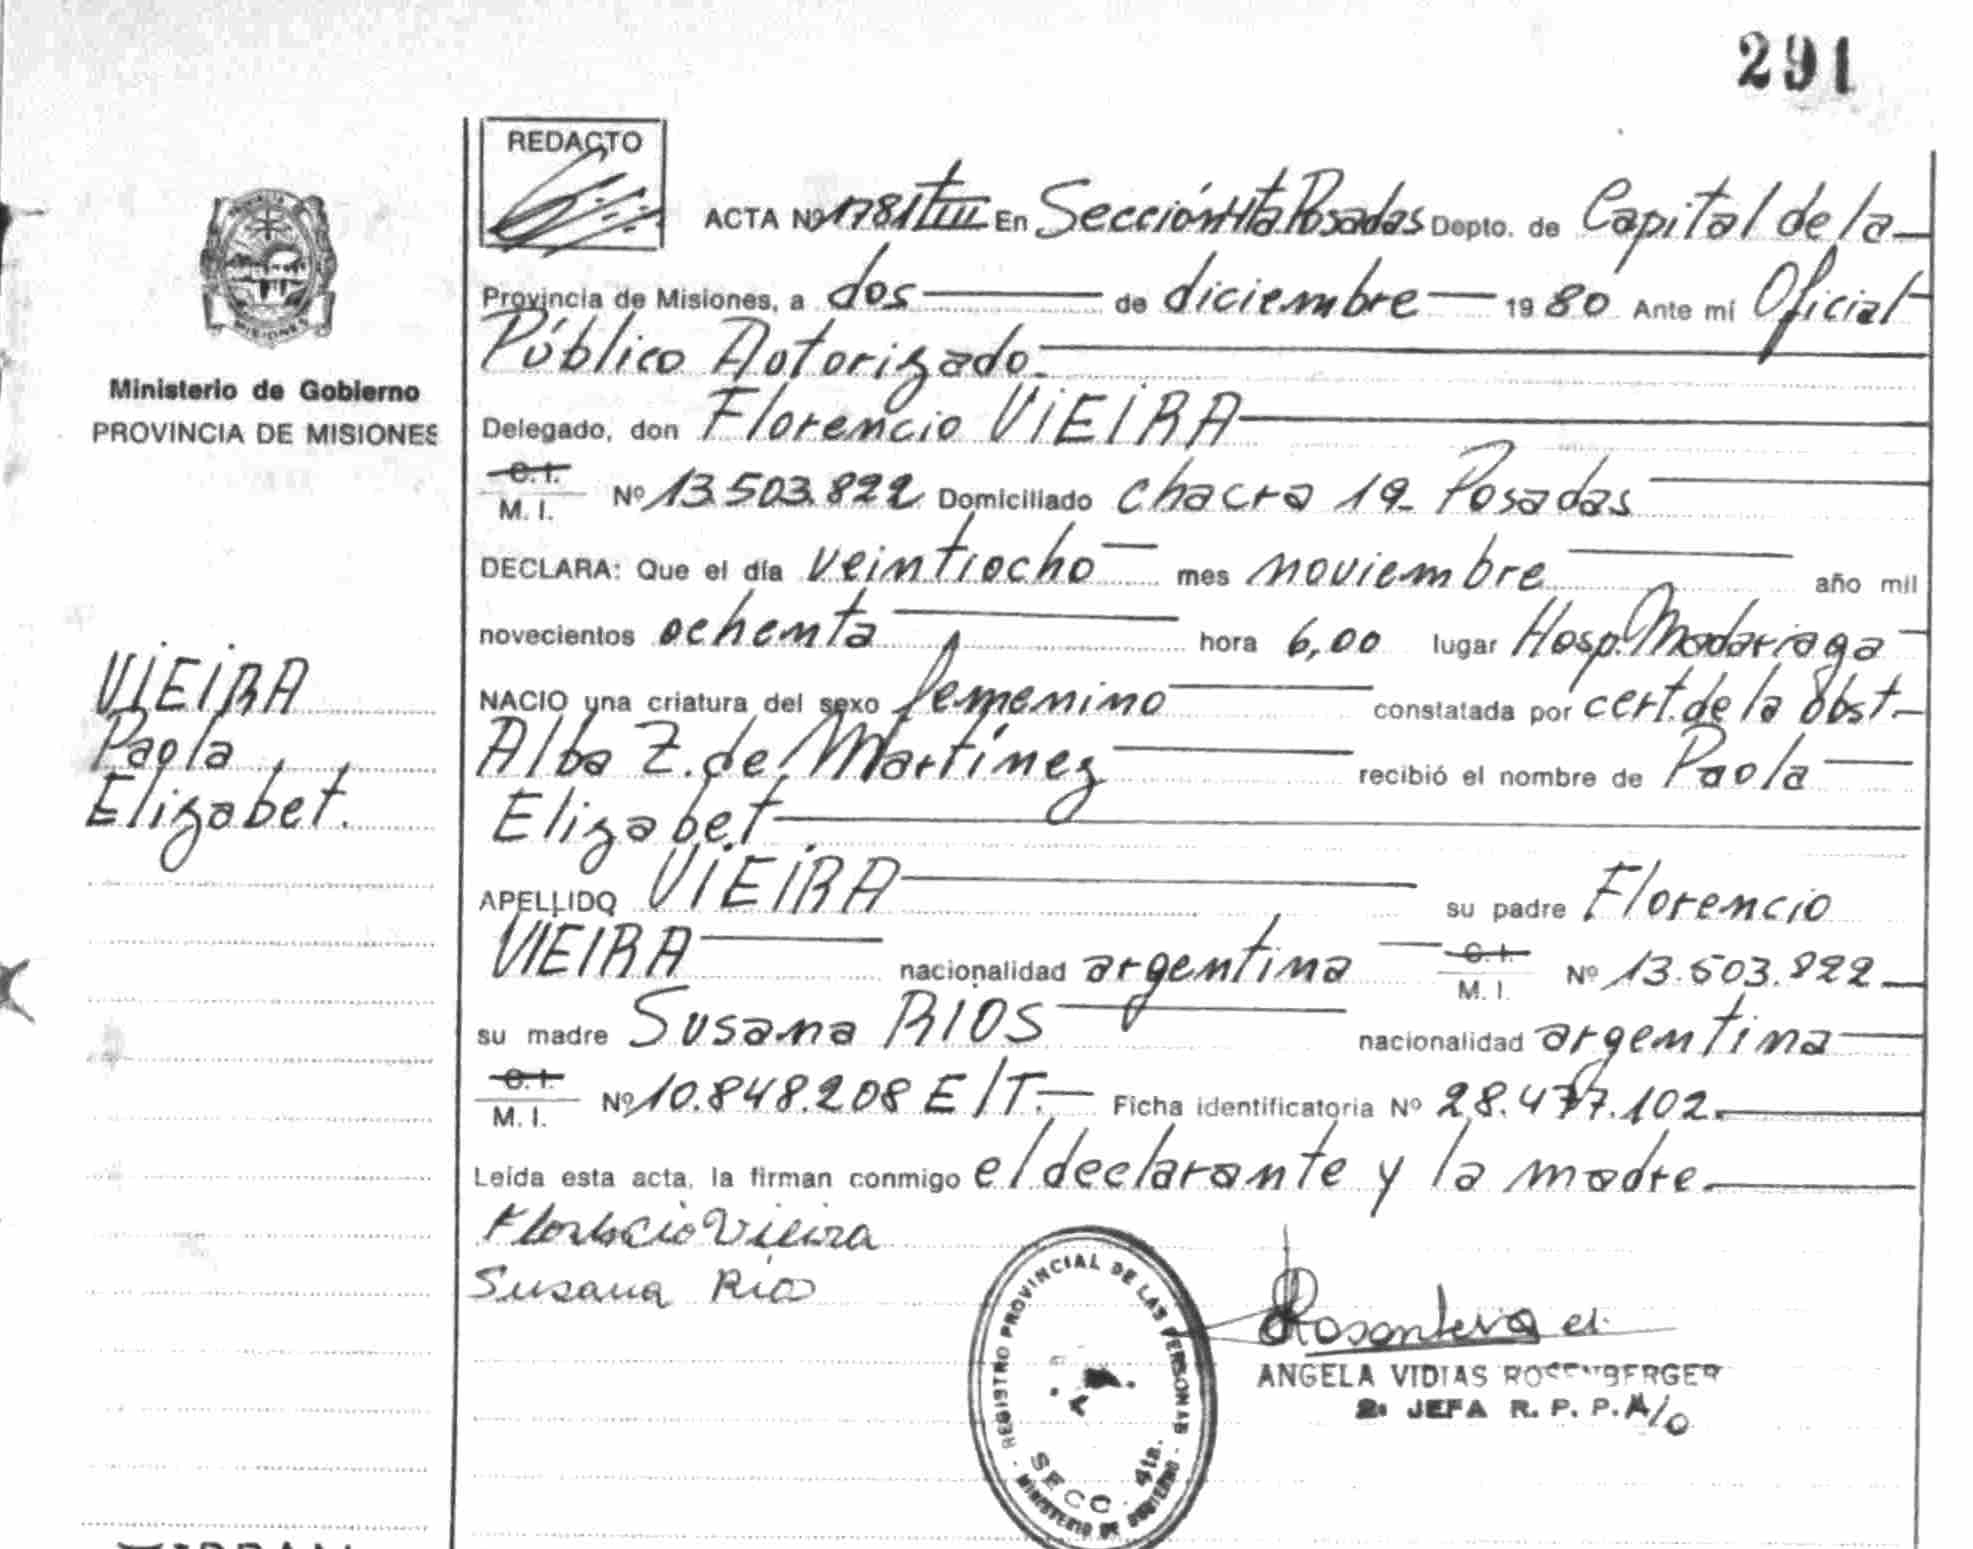 291
REDACTO
ACTA Nº 1781 TIII En Sección 4ta Posadas Depto. de Capital de la
Provincia de Misiones, a dos de diciembre 1980 Ante mí Oficial
Público Autorizado.
Ministerio de Gobierno
PROVINCIA DE MISIONES
MISIONES
Delegado, don Florencio VIEIRA
C. I.
M. I. Nº 13.503.822 Domiciliado chacra 19- Posadas
DECLARA: Que el día veintiocho mes noviembre año mil
novecientos ochenta hora 6,00 lugar Hosp. Madariaga
VIEIRA
Paola
Elizabet.
NACIO una criatura del sexo femenino constatada por cert. de la Obst.
Alba Z. de Martínez recibió el nombre de Paola
Elizabet
APELLIDO VIEIRA su padre Florencio
VIEIRA nacionalidad argentina C. I. M. I. Nº 13.503.822
su madre Susana RIOS nacionalidad argentina
C. I.
M. I. Nº 10.848.208 E/T. Ficha identificatoria Nº 28.477.102.
Leída esta acta, la firman conmigo el declarante y la madre.
Florencio Vieira
Susana Rios
REGISTRO PROVINCIAL DE LAS PERSONAS
SECC. 4ta.
MINISTERIO DE GOBIERNO
ANGELA VIDIAS ROSENBERGER
2a JEFA R. P. P. A/C